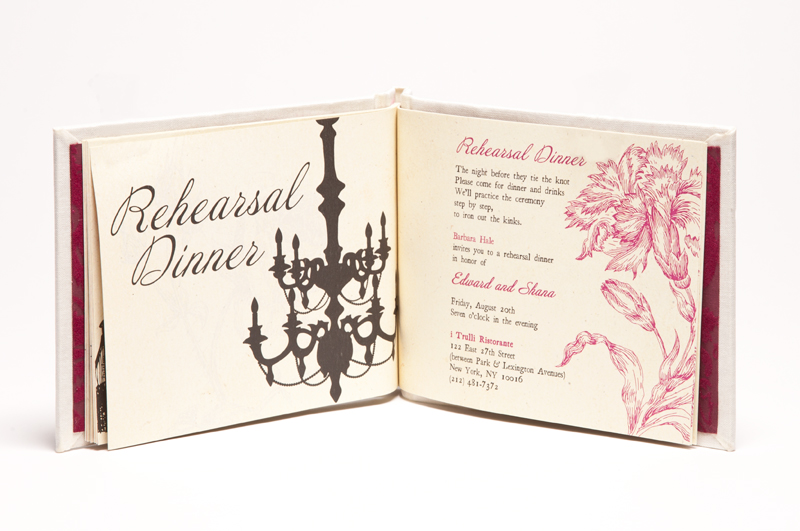 Rehearsal
Dinner
Rehearsal Dinner
The night before they tie the knot
Please come for dinner and drinks
We'll practice the ceremony
step by step,
to iron out the kinks.
Barbara Hale
invites you to a rehearsal dinner
in honor of
Edward and Shana
Friday, August 20th
Seven o'clock in the evening
i Trulli Ristorante
122 East 27th Street
(between Park & Lexington Avenues)
New York, NY 10016
(212) 481-7372